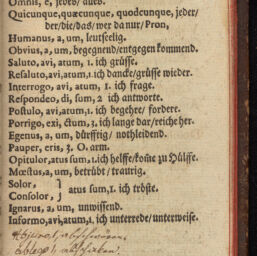 Omnis, e, jedes/ alles.
Quicunque, quæcunque, quodcunque, jeder/
der/die/das/wer da nur/Pron,
Humanus, a, um, leutselig.
Obvius, a, um, begegnend/entgegen kommend.
Saluto, avi, atum, 1. ich grüsse.
Resaluto, avi, atum, 1. ich dancke/grüsse wieder.
Interrogo, avi, atum, 1. ich frage.
Respondeo, di, sum, 2 ich antworte.
Postulo, avi, atum, 1. ich begehre/ fordere.
Porrigo, exi, ctum, 3. ich lange dar/reiche her.
Egenus, a, um, dürfftig/ nothleidend.
Pauper, eris, 3. O. arm.
Opitulor, atus sum, 1. ich helffe/kom̃e zu Hülffe.
Mœstus, a, um, betrübt/ traurig.
Solor,
Consolor, } atus sum, 1. ich tröste.
Ignarus, a, um, unwissend.
Informo, avi, atum, 1. ich unterrede/unterweise.